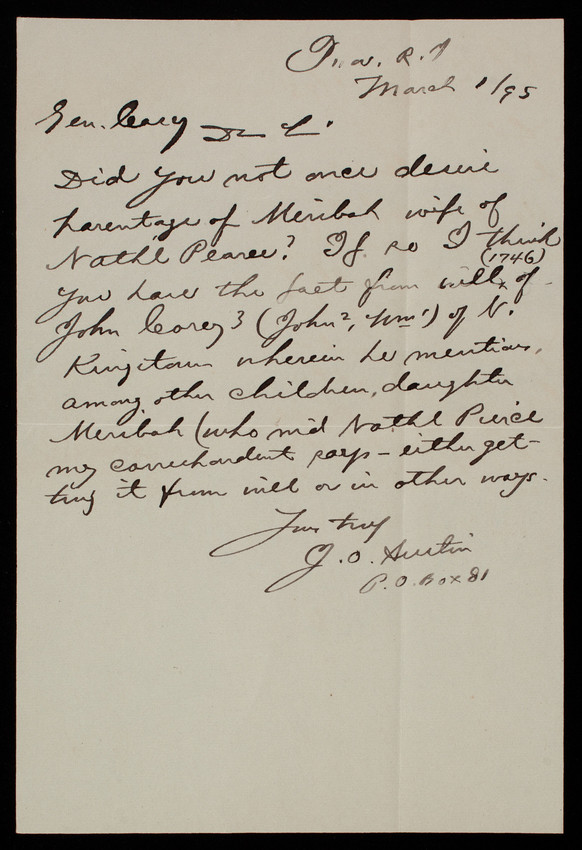 Prov. R.I
March 1/95
Gen. Casey Dr Sr
Did you not once desire
parentage of Meribah wife of
Nathl Pearce? If so I think
(1746)
you have the fact from will x of
John Casey 3 (John 2, Wm 1) of N.
Kingstown wherein he mentions,
among other children, daughter
Meribah (who md Nathl Pierce
my correspondent says - either get-
ting it from will or in other ways.
Yrs truly
J. O. Austin
P.O. Box 81